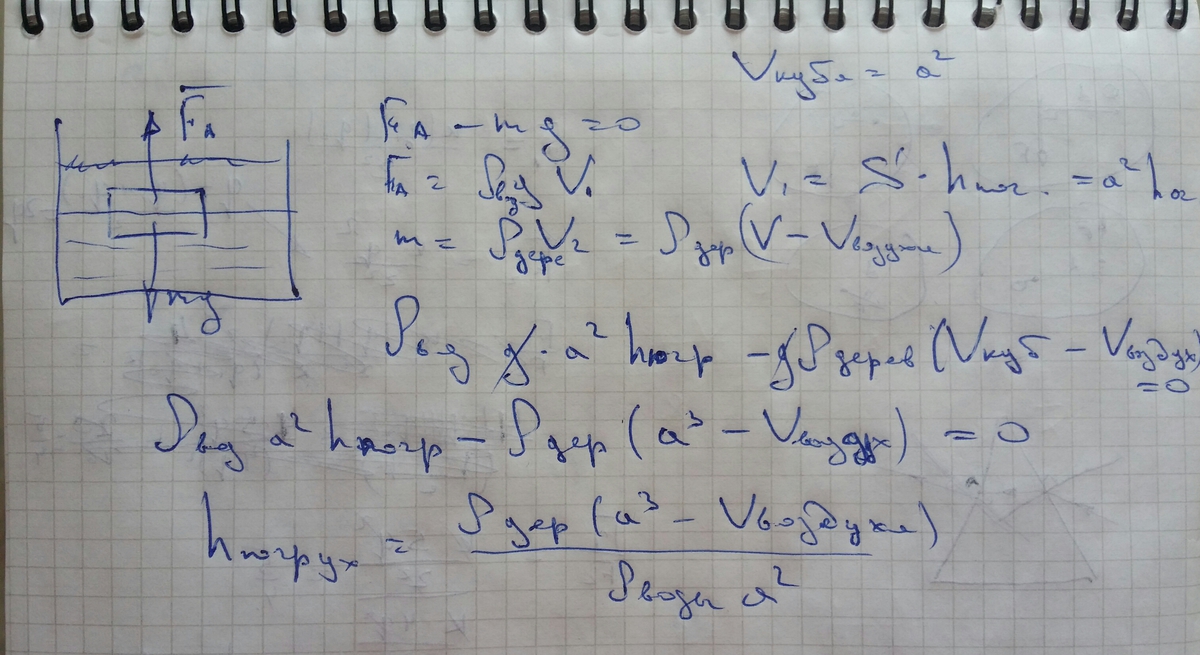 Vкубa = a²
F_A
F_A - mg = 0
F_A = ρвд g V₁   V₁ = S · hпог. = a² hпог
m = ρдерев V₂ = ρдер (V - Vвоздуха)
mg
ρвд g · a² hпогр - g ρдерев (Vкуб - Vвоздух) = 0
ρвд a² hпогр - ρдер (a³ - Vвоздух) = 0
hпогруж = ρдер (a³ - Vвоздуха) / ρводы a²